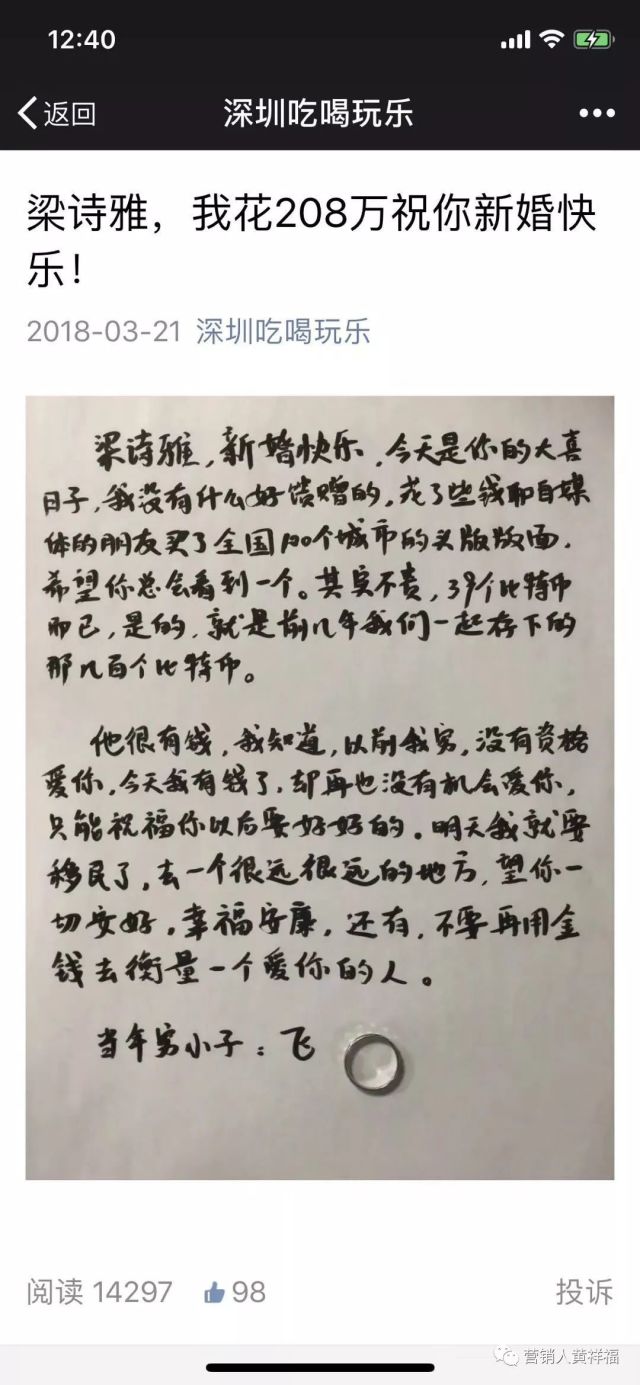 12:40
返回
深圳吃喝玩乐
梁诗雅，我花208万祝你新婚快
乐！
2018-03-21 深圳吃喝玩乐
梁诗雅，新婚快乐，今天是你的大喜
日子，我没有什么好馈赠的，花了些钱和自媒
体的朋友买了全国100个城市的头版版面，
希望你总会看到一个。其实不贵，39个比特币
而已，是的，就是前几年我们一起存下的
那几百个比特币。
他很有钱，我知道，以前我穷，没有资格
爱你，今天我有钱了，却再也没有机会爱你，
只能祝福你以后要好好的。明天我就要
移民了，去一个很远很远的地方，望你一
切安好，幸福安康，还有，不要再用金
钱去衡量一个爱你的人。
当年穷小子：飞
阅读 14297 98 投诉
营销人黄祥福